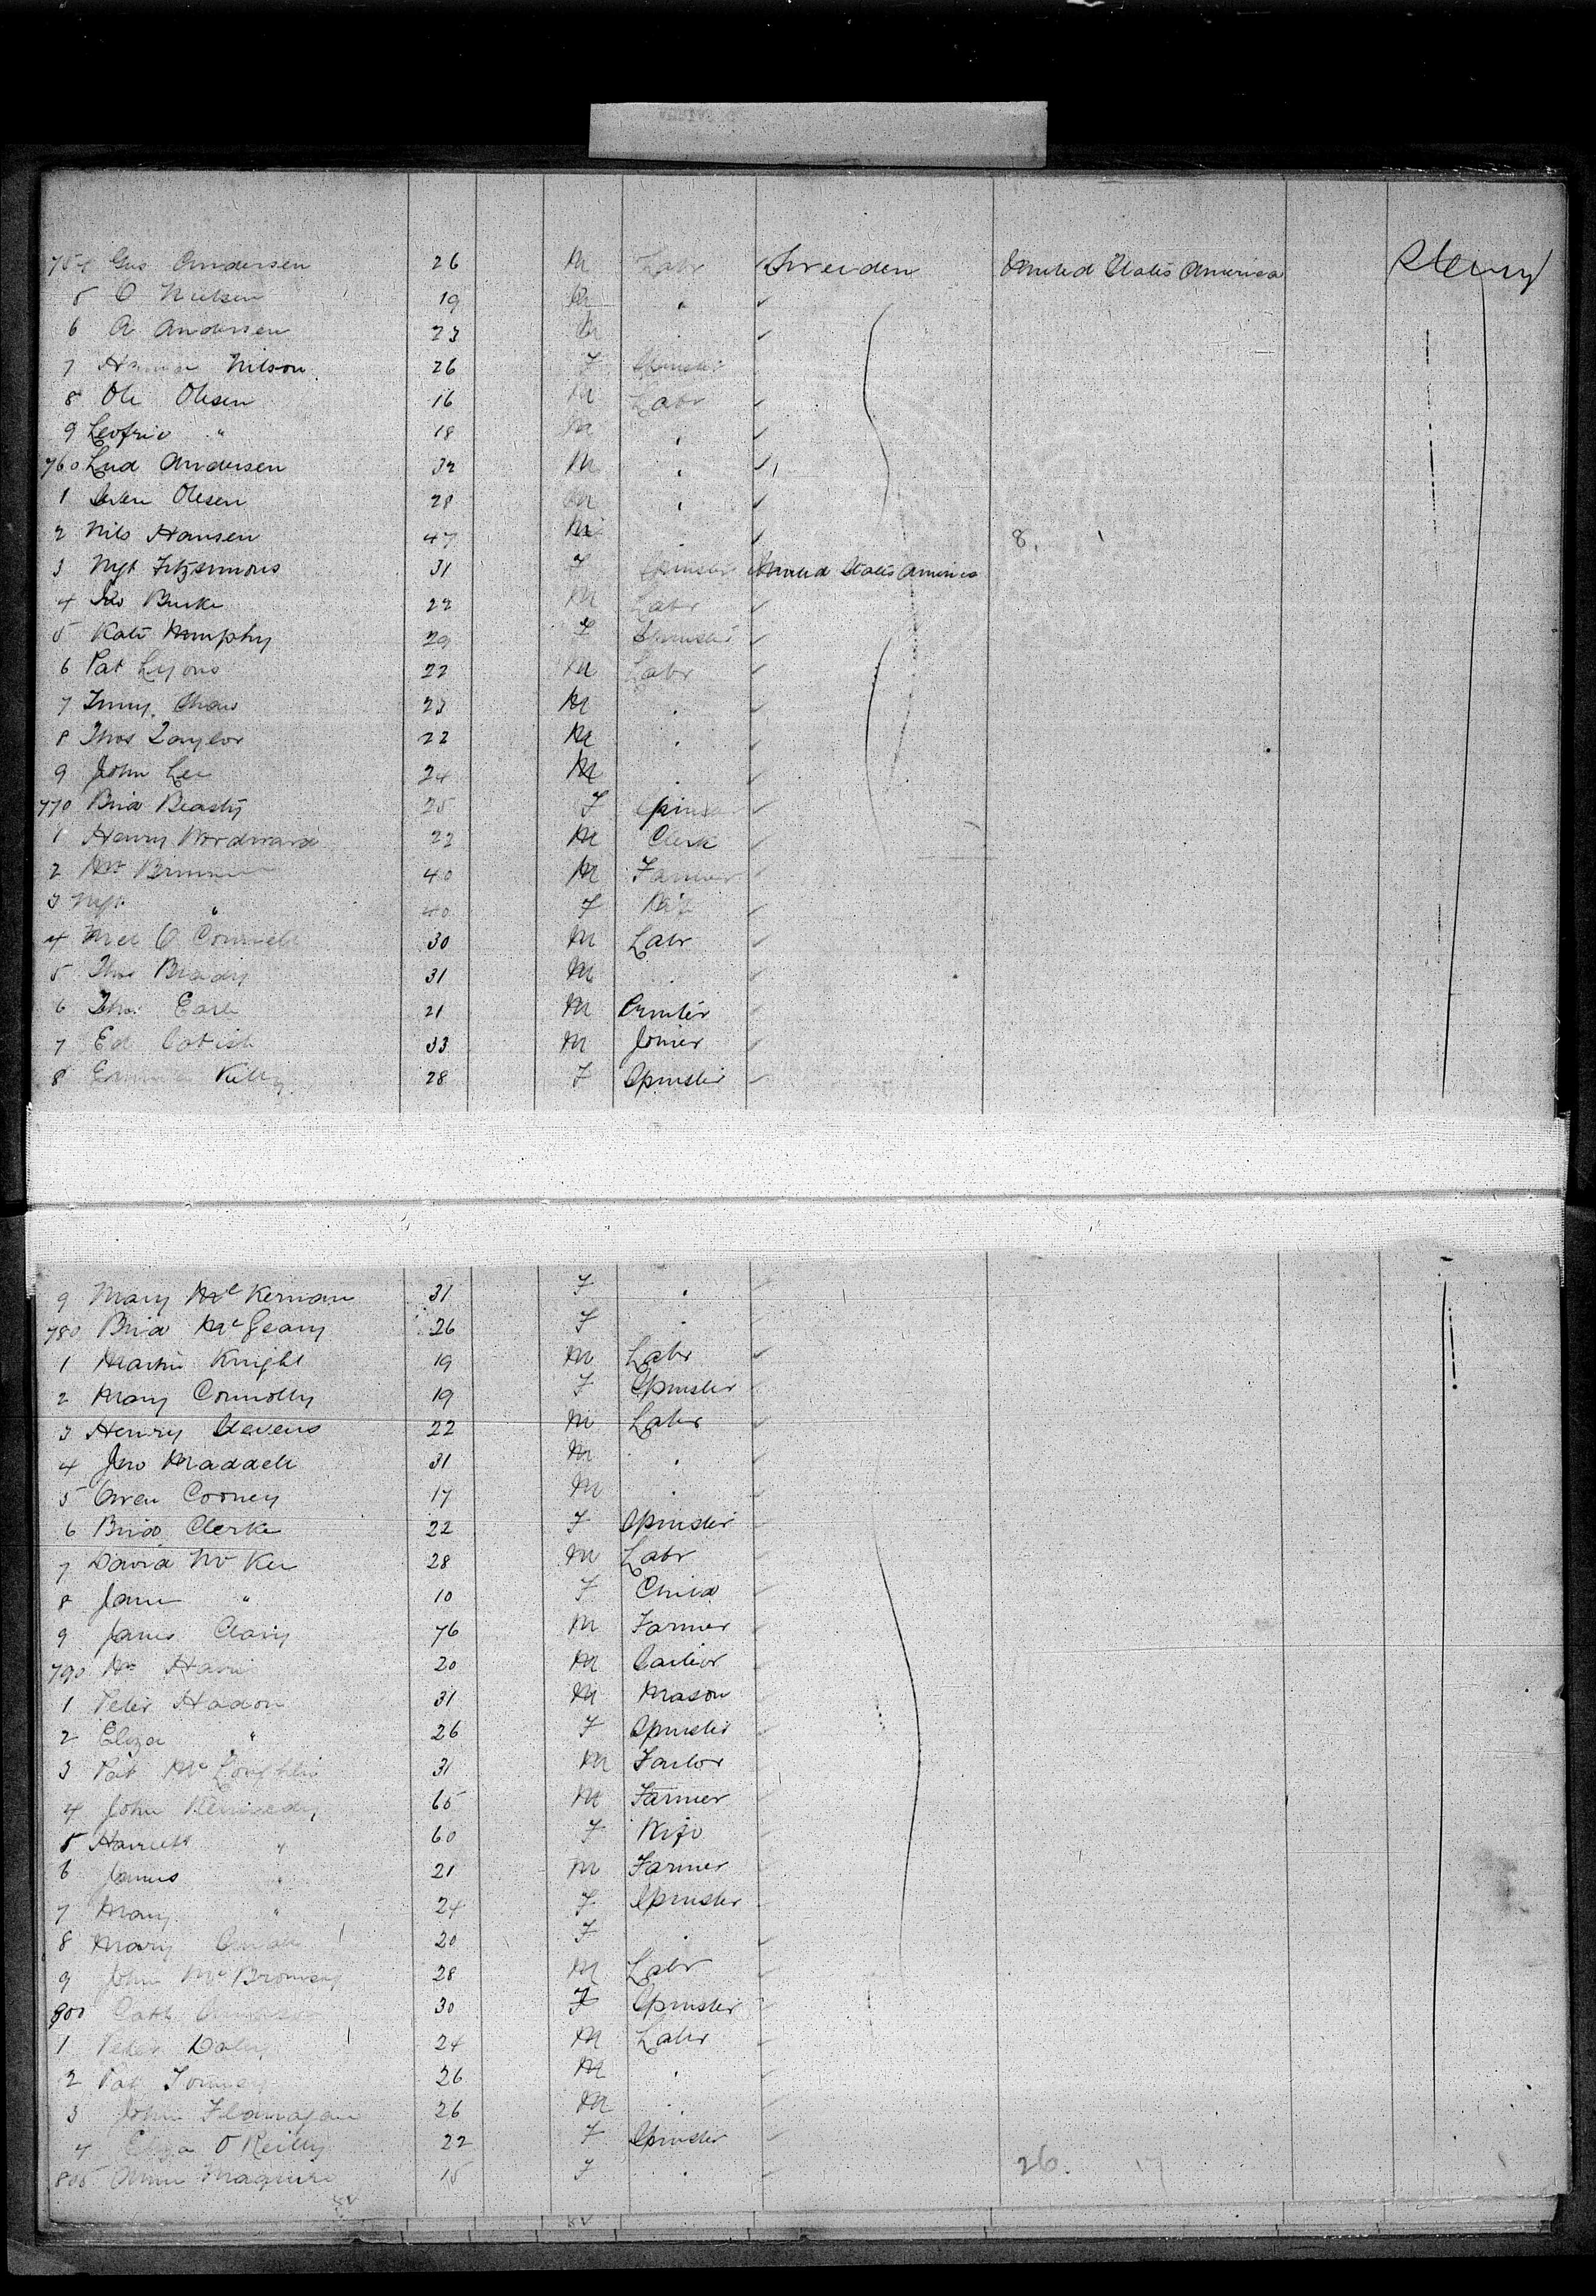 754 Gus Andersen 26 M Labr Sweiden United States America
5 O Nielsen 19 M "
6 A Andersen 23 M
7 Nilson 26 F Spinster
8 Ole Olesen 16 M Labr
9 " 18 M "
760 Lud Andersen 32 M "
1 Olesen 28 M "
2 Nils Hansen 47 M 8.
3 Mgt Fitzsimons 31 F Spinster United States America
4 Jno Burke 22 M Labr
5 Kate Murphy 29 F Spinster
6 Pat Lyons 22 M Labr
7 23 M "
8 Thos Taylor 22 M "
9 John Lee 24 M "
770 Brid 25 F
1 Henry Wordward 22 M Clerk
2 Wm 40 M Farmer
3 Mgt " 40 F Wife
4 Mcl O Connell 30 M Labr
5 Thos Brady 31 M "
6 Thos Earl 21 M Printer
7 Ed 33 M Joiner
8 Kelly 28 F Spinster
9 Mary McKernan 31 F "
780 Brid McGeary 26 F "
1 Martin Knight 19 M Labr
2 Mary Connolly 19 F Spinster
3 Henry Stevens 22 M Labr
4 Jno Maddell 31 M "
5 Owen Cooney 17 M "
6 Brid Clerke 22 F Spinster
7 David 28 M Labr
8 Jane " 10 F Child
9 James Clary 76 M Farmer
790 Wm 20 M
1 Peter Hadon 31 M Mason
2 Eliza " 26 F Spinster
3 Pat McLoughlin 31 M Tailor
4 John Kennedy 65 M Farmer
5 Harriett " 60 F Wife
6 James " 21 M Farmer
7 Mary " 24 F Spinster
8 Mary 20 F "
9 John 28 M Labr
800 Cath 30 F Spinster
1 Peter Daly 24 M Labr
2 Pat 26 M "
3 John Flanagan 26 M "
4 Eliza O Reilly 22 F Spinster
805 Annie Maguire 15 F " 26.